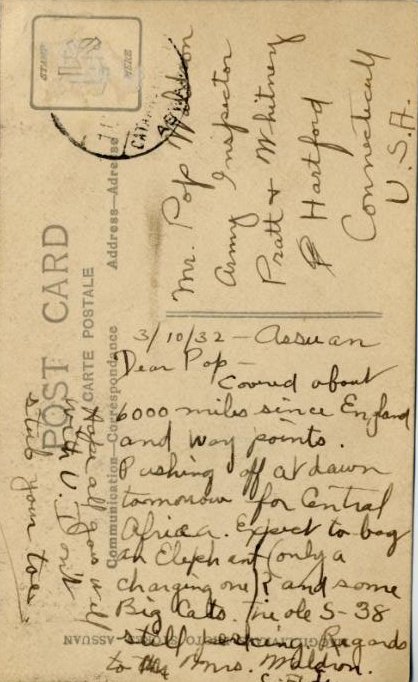 POST CARD
CARTE POSTALE
Communication—Correspondence
Address—Adresse
STAMP
HERE
Mr. Pop Waldron
Army Inspector
Pratt & Whitney
Hartford
Connecticut
U.S.A.
3/10/32 — Assuan
Dear Pop —
Covered about
6000 miles since England
and way points.
Pushing off at dawn
tomorrow for Central
Africa. Expect to bag
an Elephant (only a
charging one)? and some
Big Cats. The ole S-38
still perking. Regards
to Mrs. Waldron.
Hope all goes well
with U. Don't
stub your toe.
ASSUAN